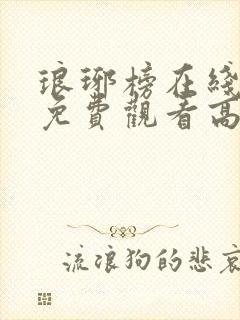 琅琊榜在綫
免費觀看高
流浪狗的悲哀